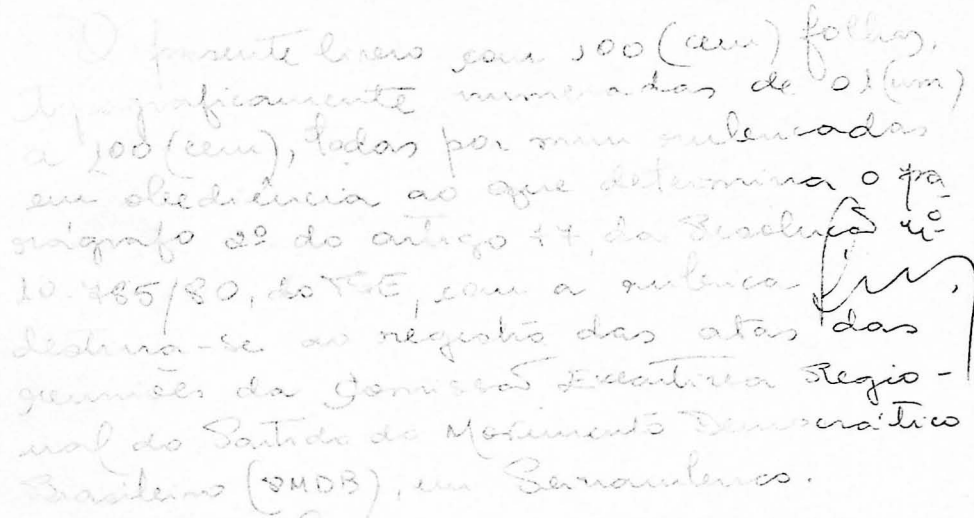 O presente livro com 100 (cem) folhas,
tipograficamente numeradas de 01 (um)
a 100 (cem), todas por mim rubricadas
em obediência ao que determina o pa
rágrafo 2º do artigo 77, da Resolução nº
10.785/80, do TSE, com a rubrica
destina-se ao registro das atas das
reuniões da Comissão Executiva Regio-
nal do Partido do Movimento Democrático
Brasileiro (PMDB), em Pernambuco.